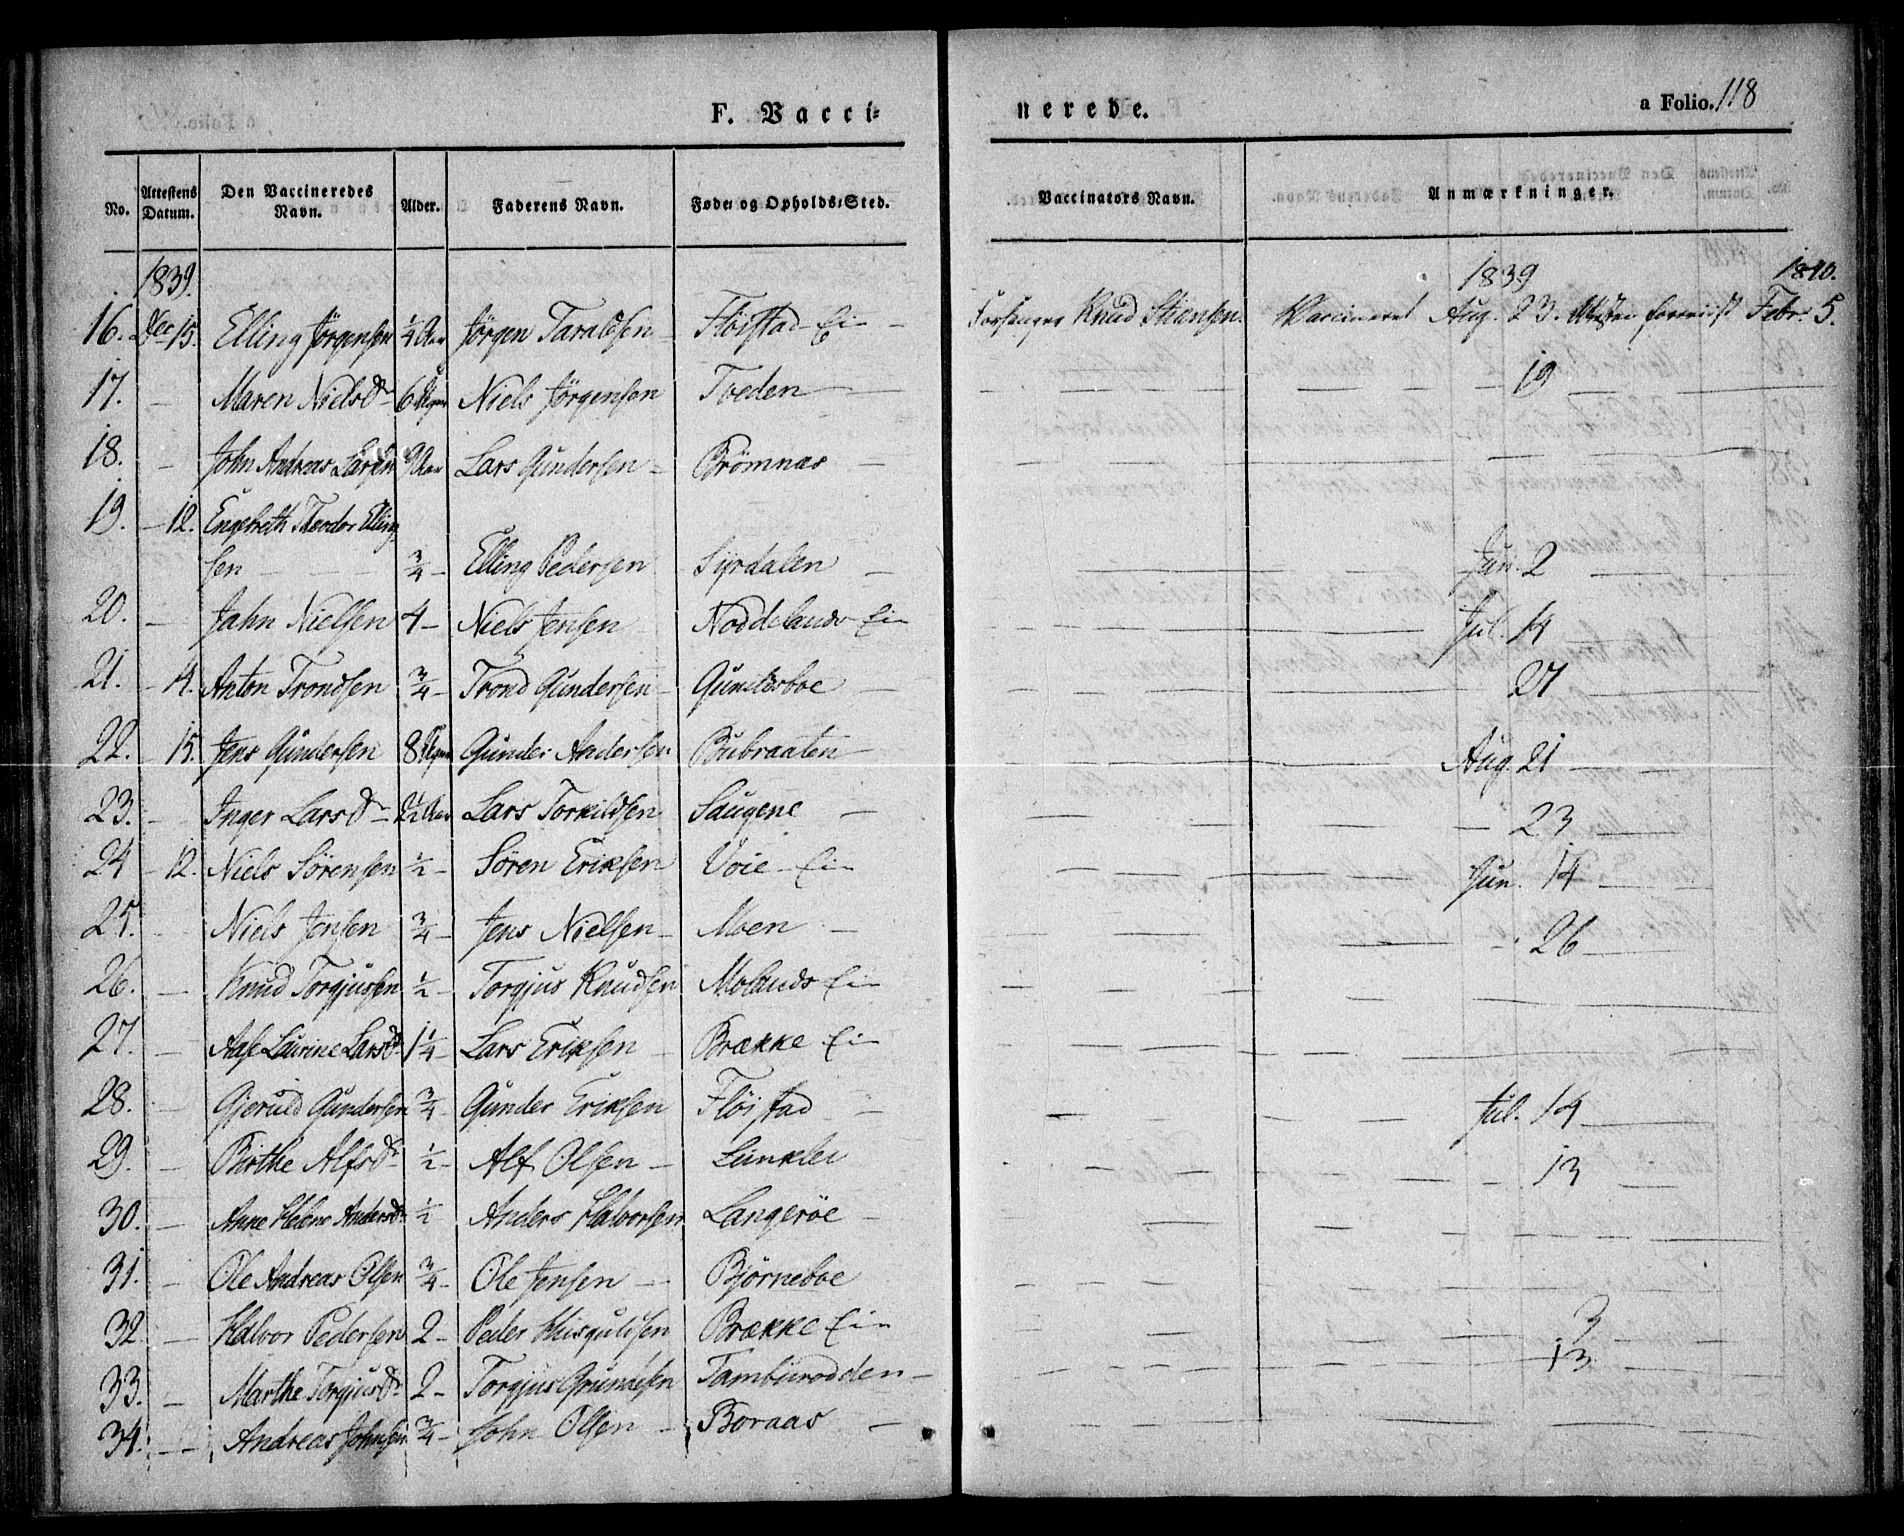 F. Vacci-
nerede.
a Folio. 118
No. Attestens Datum. Den Vaccineredes Navn. Alder. Faderens Navn. Føde- og Opholds-Sted. Vaccinators Navn. Anmærkninger.
1839. 1839 1840.
16. Dec 15. Elling Jörgensen 1/4 Aar Jörgen Taraldsen - Flöistad Ei - Knud Stiansen. Vaccineret Aug. 23. Febr. 5.
17. - Maren Nielsdr 6 Niels Jörgensen Tveden - - 19
18. - John Andreas Larsen 9 Aar Lars Gundersen - Brömnas -
19. - 12. Engebreth Theodor Elling
sen - 3/4 - Elling Pedersen Syrdalen - Jun. 2
20. - Jahn Nielsen 4 - Niels Jensen Noddelands Ei - Jul. 14
21. - 14. Anton Trondsen 3/4 - Trond Gundersen - Gundersboe - 27
22. - 15. Jens Gundersen 8 Gunder Andersen Bubraaten - Aug. 21
23. - Inger Larsdr - 2 1/2 Aar Lars Torkildsen Saugene - - 23
24 - 12. Niels Sörensen 1/2 - Sören Eriksen Voie - Ei - Jun. 14
25. - Niels Jensen 3/4 - Jens Nielsen - Moen - - 26
26. - Knud Torgjussen 1/2 - Torgjus Knudsen Molands Ei -
27. - Aase Laurine Larsdr 1 1/4 - Lars Eriksen - Brække Ei -
28. - Gjeruld Gundersen 3/4 - Gunder Eriksen Flöistad - Jul. 14
29. - Birthe Alfsdr 1/2 - Alf Olsen - Lunklei - 13
30. - Anne Helene Andersdr 1/2 - Anders Halvorsen Langeröe -
31. - Ole Andreas Olsen 3/4 - Ole Jensen - Björneboe
32 - Halvor Pedersen 2 - Peder Hisguldsen Brække Ei - 3
33. - Marthe Torgjusdr 2 - Torgjus Grundesen Tamburodden - 13
34. - - Andreas Johnsen 3/4 - John Olsen - Boraas -